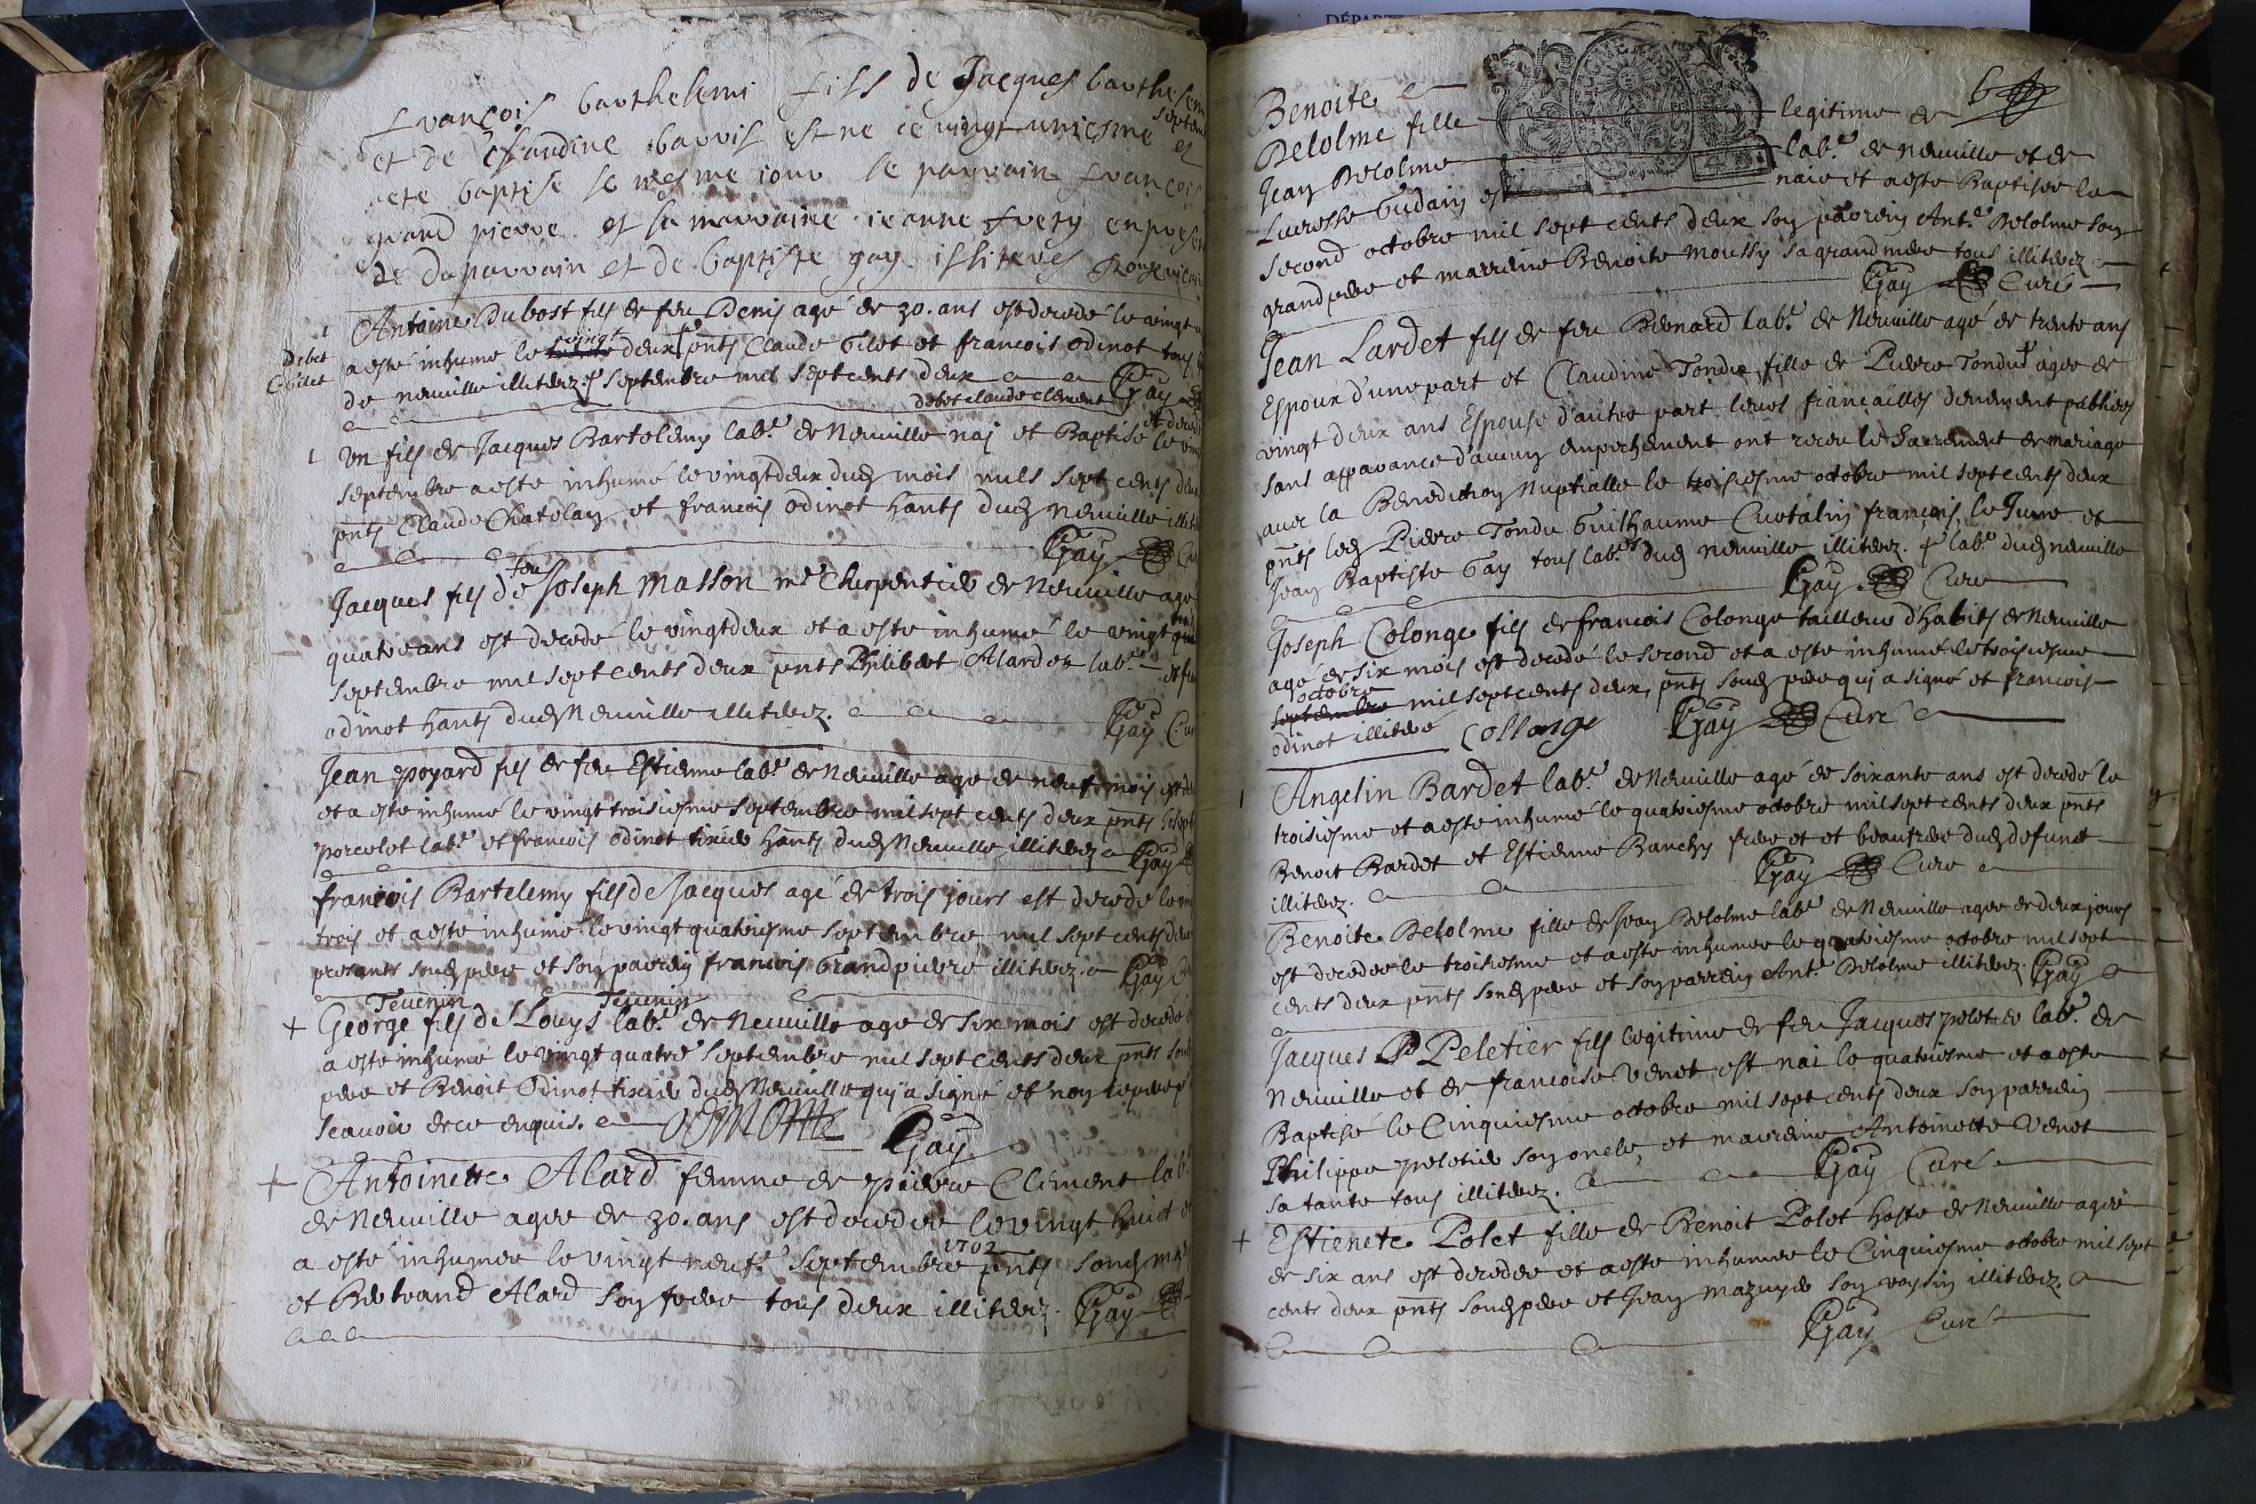 françois barthelemi fils de Jacques barthelemi
et de claudine barvis est ne ce vingt uniesme septem
ete baptise le mesme iour le parrain françois et
grand pierre et la marraine ieanne frery en presen
de du parrain et de baptiste gay illiteres
Antoine Dubost fils de feu Denis agé de 30. ans est decedé le vingt
a esté inhumé le vingt deux pnts Claude Gilet et francois odinot tous
de neuville illiterez. septembre mil sept cents deux Gay
Debet
debet claude clement
Un fils de Jacques Bartelemy lab.r de Neuville nai et Baptisé et decedé le vin
septembre a esté inhumé le vingt deux dud mois mils sept cents deux
pnts Claude Chatelan et francois odinot hants dud Neuville illit
Gay Cu
Jacques fils de feu Joseph Masson me Charpentier de Neuville agé
quatre ans est decedé le vingt deux et a esté inhumé le vingt
septembre mil sept cents deux pnts Philibert Alardet lab.r et fr
odinot hants dud Neuville illiterez. Gay Cur
Jean poyard fils de feu Estienne lab.r de Neuville agé de neuf mois est de
et a esté inhumé le vingt troisiesme septembre mil sept cents deux pnts
porcelet lab.r et francois odinot tixier hants dud Neuville illiterez Gay
francois Bartelemy fils de Jacques agé de trois jours est decedé le vin
trois et a esté inhumé le vingt quatriesme septembre mil sept cents deux
presants soud pere et son parrein francois Grandpierre illiterez. Gay
Tevenin Tevenin
George fils de Louys lab.r de Neuville agé de six mois est decedé
a esté inhumé le vingt quatre septembre mil sept cents deux pnts soud
pere et Benoit Odinot tixier dud Neuville qui a signé et non le pere p
scavoir de ce enquis. odinot Gay
Antoinette Alard femme de pierre Clement lab.r
de Neuville agee de 30. ans est decedee le vingt huict et
a esté inhumee le vingt neuf.e septembre 1702 pnts soud mar
et Bertrand Alard son frere tous deux illiterez. Gay
6
Benoite
Delolme fille legitime de
Jean Delolme lab.r de neuville et de
Lucresse Gudain est naie et a esté Baptisée le
second octobre mil sept cents deux son parrein Ant.e Delolme son
grand pere et marreine Benoite Moussy sa grand mere tous illiterez
Gay Curé
Jean Lardet fils de feu Benard lab.r de Neuville agé de trente ans
Espoux d'une part et Claudine Tondu fille de Pierre Tondu agee de
vingt deux ans Espouse d'autre part leurs fiancailles deuement publiees
sans apparance d'aucun empechement ont receu le Sacrement de mariage
avec la Benediction Nuptialle le troisiesme octobre mil sept cents deux
pnts led Pierre Tondu Guilhaume Curtalin francois le June et
Jean Baptiste Gay tous lab.rs dud Neuville illiterez. lab.r dud neuville
Gay Curé
Joseph Colonge fils de francois Colonge tailleur d'habits de Neuville
agé de six mois est decedé le second et a esté inhumé le troisiesme
octobre
septembre mil sept cents deux, pnts soud pere qui a signé et francois
odinot illiteré Collonge Gay Curé
Angelin Bardet lab.r de Neuville agé de soixante ans est decedé le
troisiesme et a esté inhumé le quatriesme octobre mil sept cents deux pnts
Benoit Bardet et Estienne Banchy frere et et beaufrere dud defunct
illiterez. Gay Curé
Benoite Delolme fille de Jean Delolme lab.r de Neuville agee de deux jours
est decedee le troisiesme et a esté inhumee le quatriesme octobre mil sept
cents deux pnts soud pere et son parrein Ant.e Delolme illiterez. Gay
Jacques P Peletier fils legitime de feu Jacques peletier lab.r de
Neuville et de francoise Venet est nai le quatriesme et a esté
Baptisé le Cinquiesme octobre mil sept cents deux son parrein
Philippe peletier son oncle, et marreine Antoinette Venet
sa tante tous illiterez. Gay Curé
Estienete Polet fille de Benoit Polet hoste de Neuville agée
de six ans est decedee et a esté inhumee le Cinquiesme octobre mil sept
cents deux pnts soud pere et Jean Mazuyer son voysin illiterez.
Gay Curé